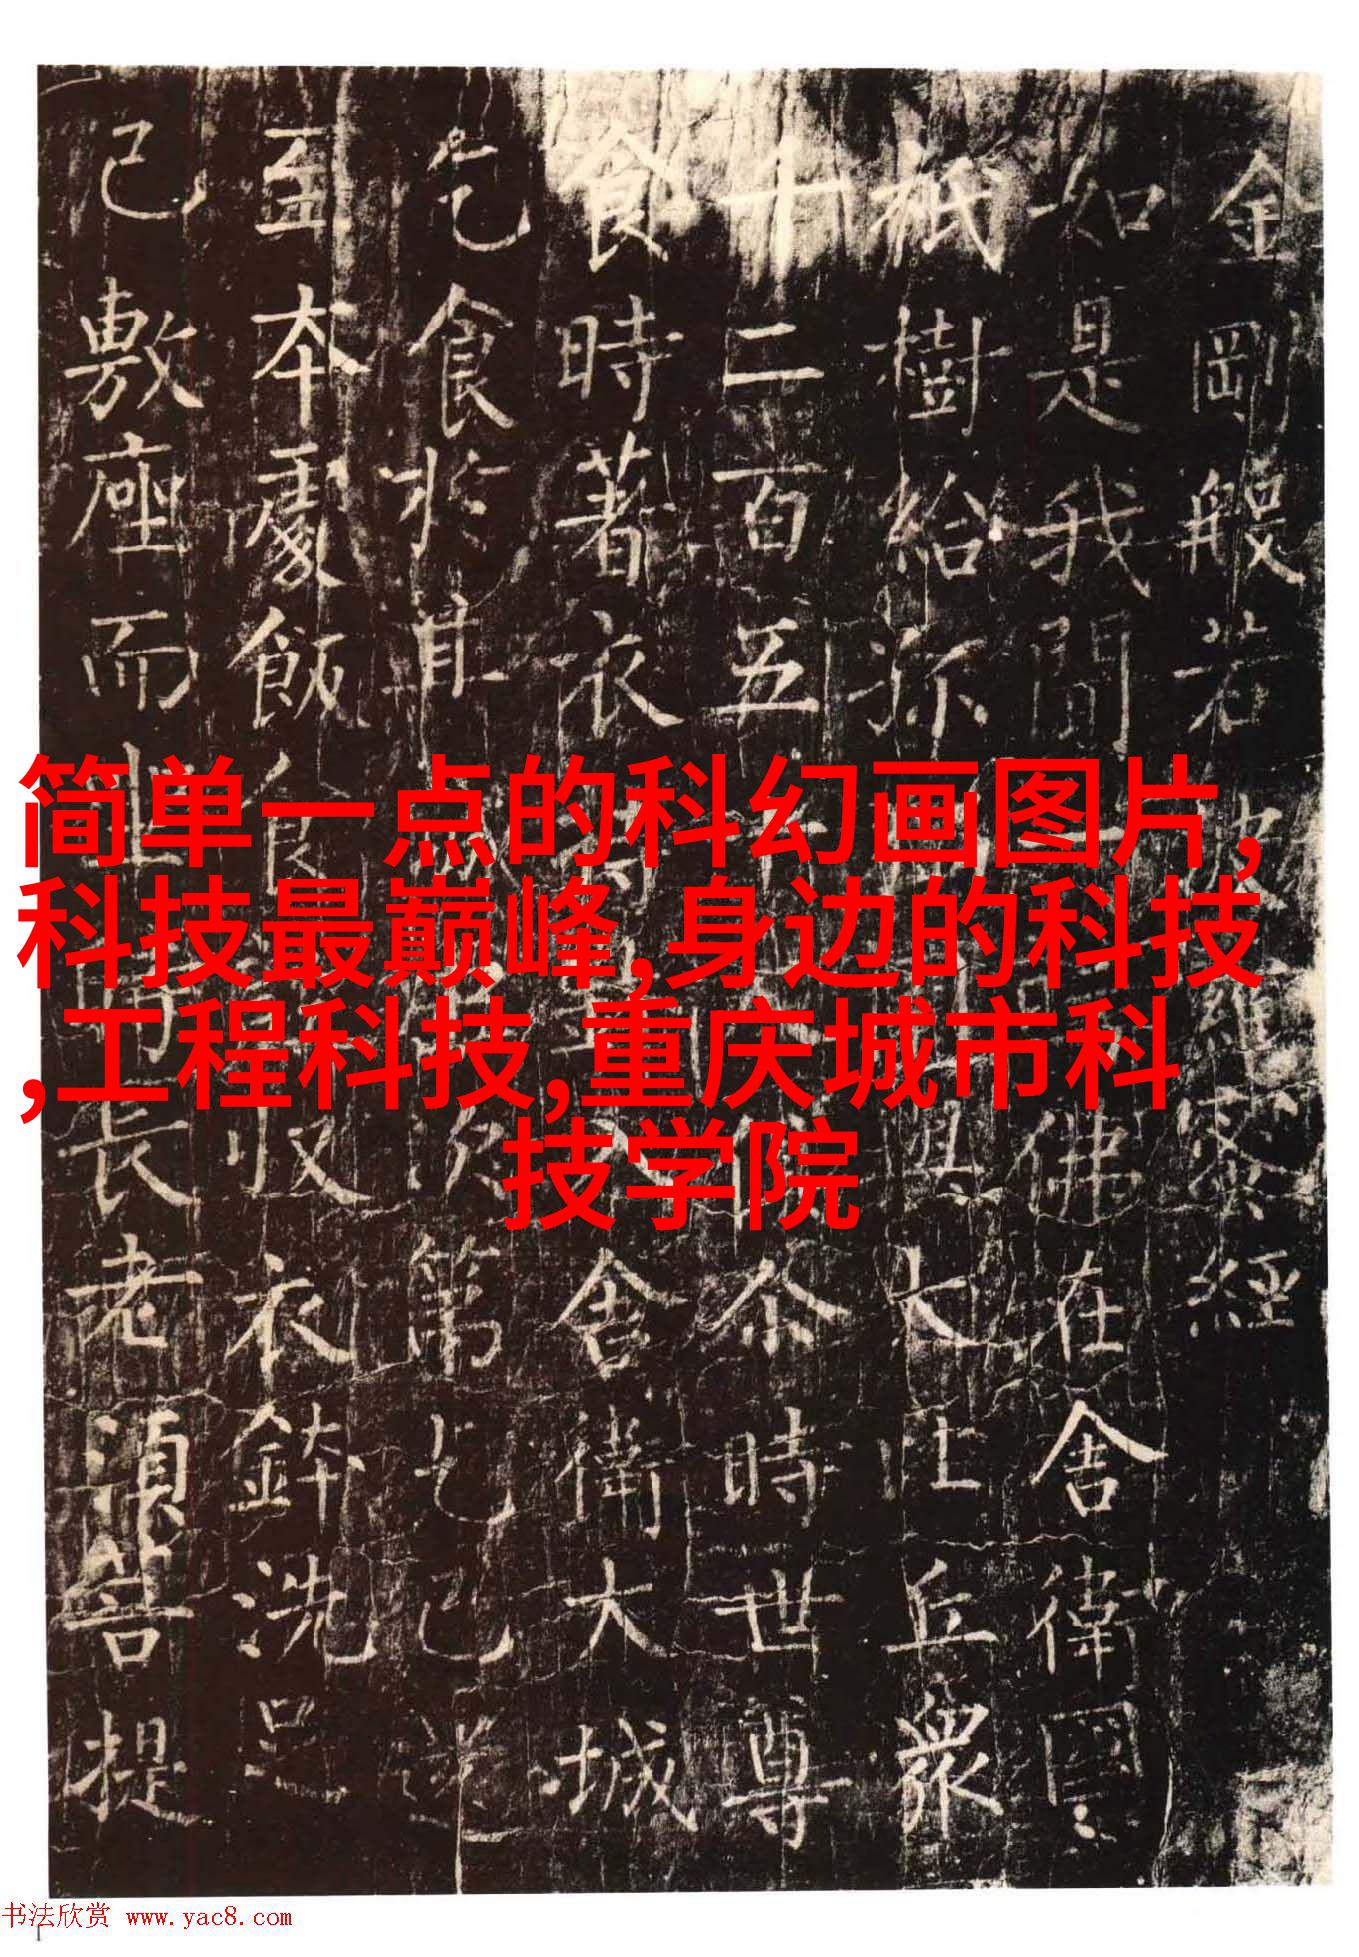 金剛般若波羅蜜經
如是我聞一佛在舍衛國
祇樹給孤大比丘眾
千二百五十尒時世尊
食時著衣持舍衛大城
乞食於其次第乞已還
至本處飯食収衣鉢洗足
已敷座而坐時長老須菩提
简单一点的科幻画图片,
科技最巅峰,身边的科技
,工程科技,重庆城市科
技学院
书法欣赏 www.yac8.com